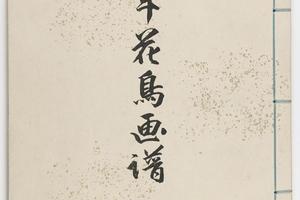 年花鳥画譜